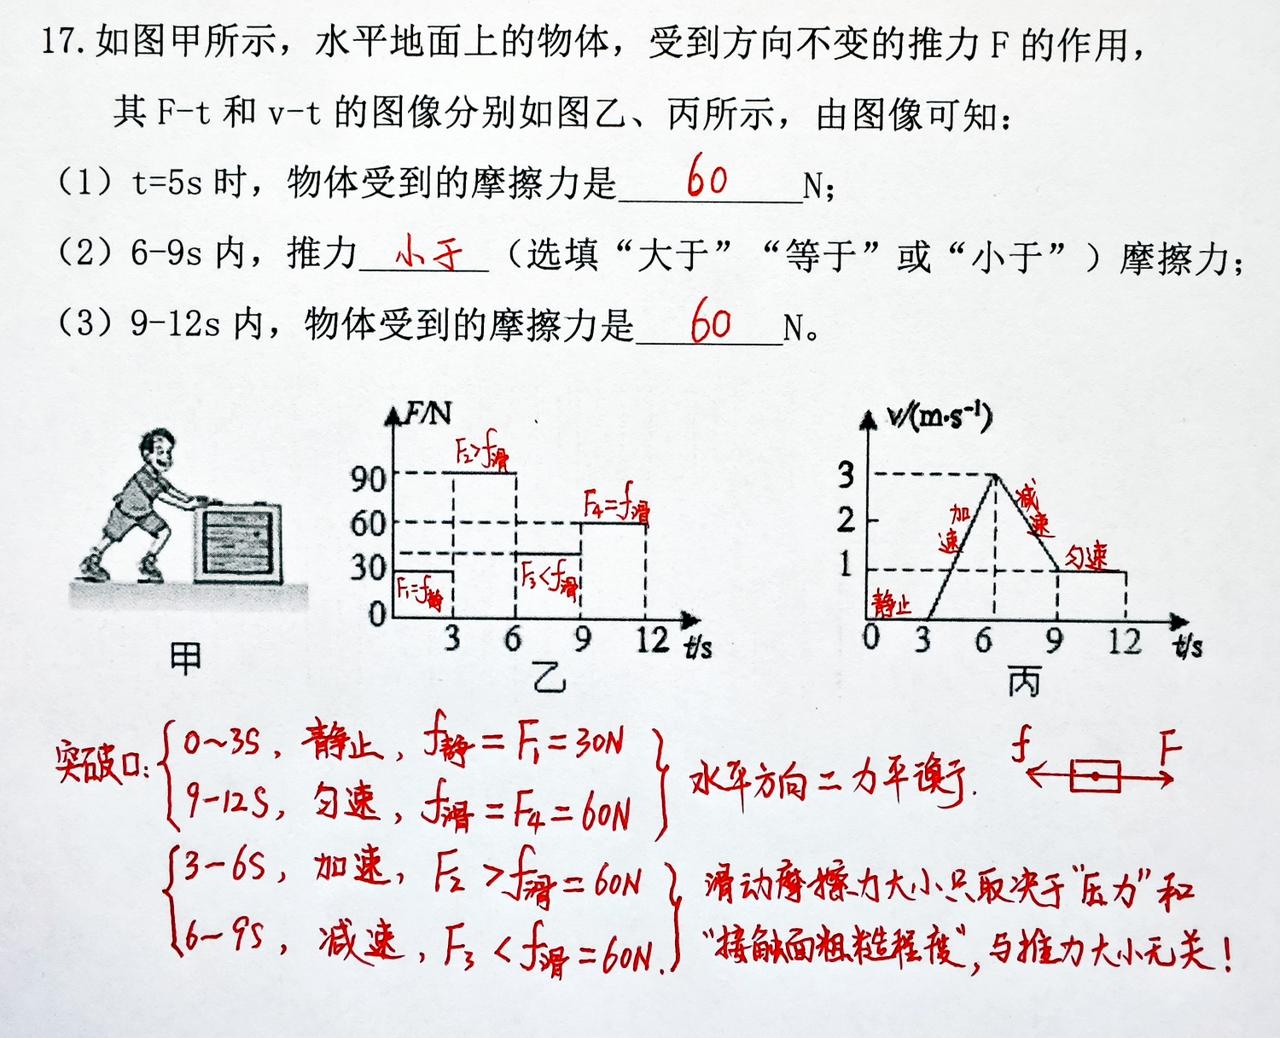 17.如图甲所示，水平地面上的物体，受到方向不变的推力 F 的作用，
其 F-t 和 v-t 的图像分别如图乙、丙所示，由图像可知：
（1）t=5s 时，物体受到的摩擦力是 60 N；
（2）6-9s 内，推力 小于 （选填“大于”“等于”或“小于”）摩擦力；
（3）9-12s 内，物体受到的摩擦力是 60 N。
F/N
90
60
30
0
3 6 9 12 t/s
F₂>f滑
F₄=f滑
F₁=f静
F₃<f滑
v/(m·s⁻¹)
3
2
1
0 3 6 9 12 t/s
加速
减速
匀速
静止
甲
乙
丙
突破口:
0~3S, 静止, f静=F₁=30N
9-12S, 匀速, f滑=F₄=60N
水平方向二力平衡.
f F
3-6S, 加速, F₂>f滑=60N
6-9S, 减速, F₃<f滑=60N.
滑动摩擦力大小只取决于“压力”和
“接触面粗糙程度”,与推力大小无关!